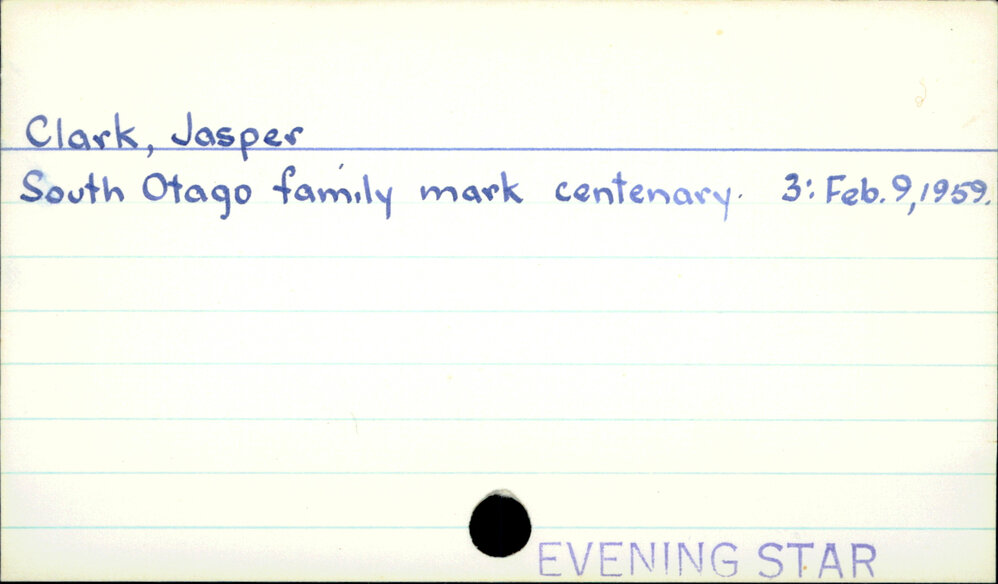 Clark, Jasper
South Otago family mark centenary. 3: Feb. 9, 1959.
EVENING STAR